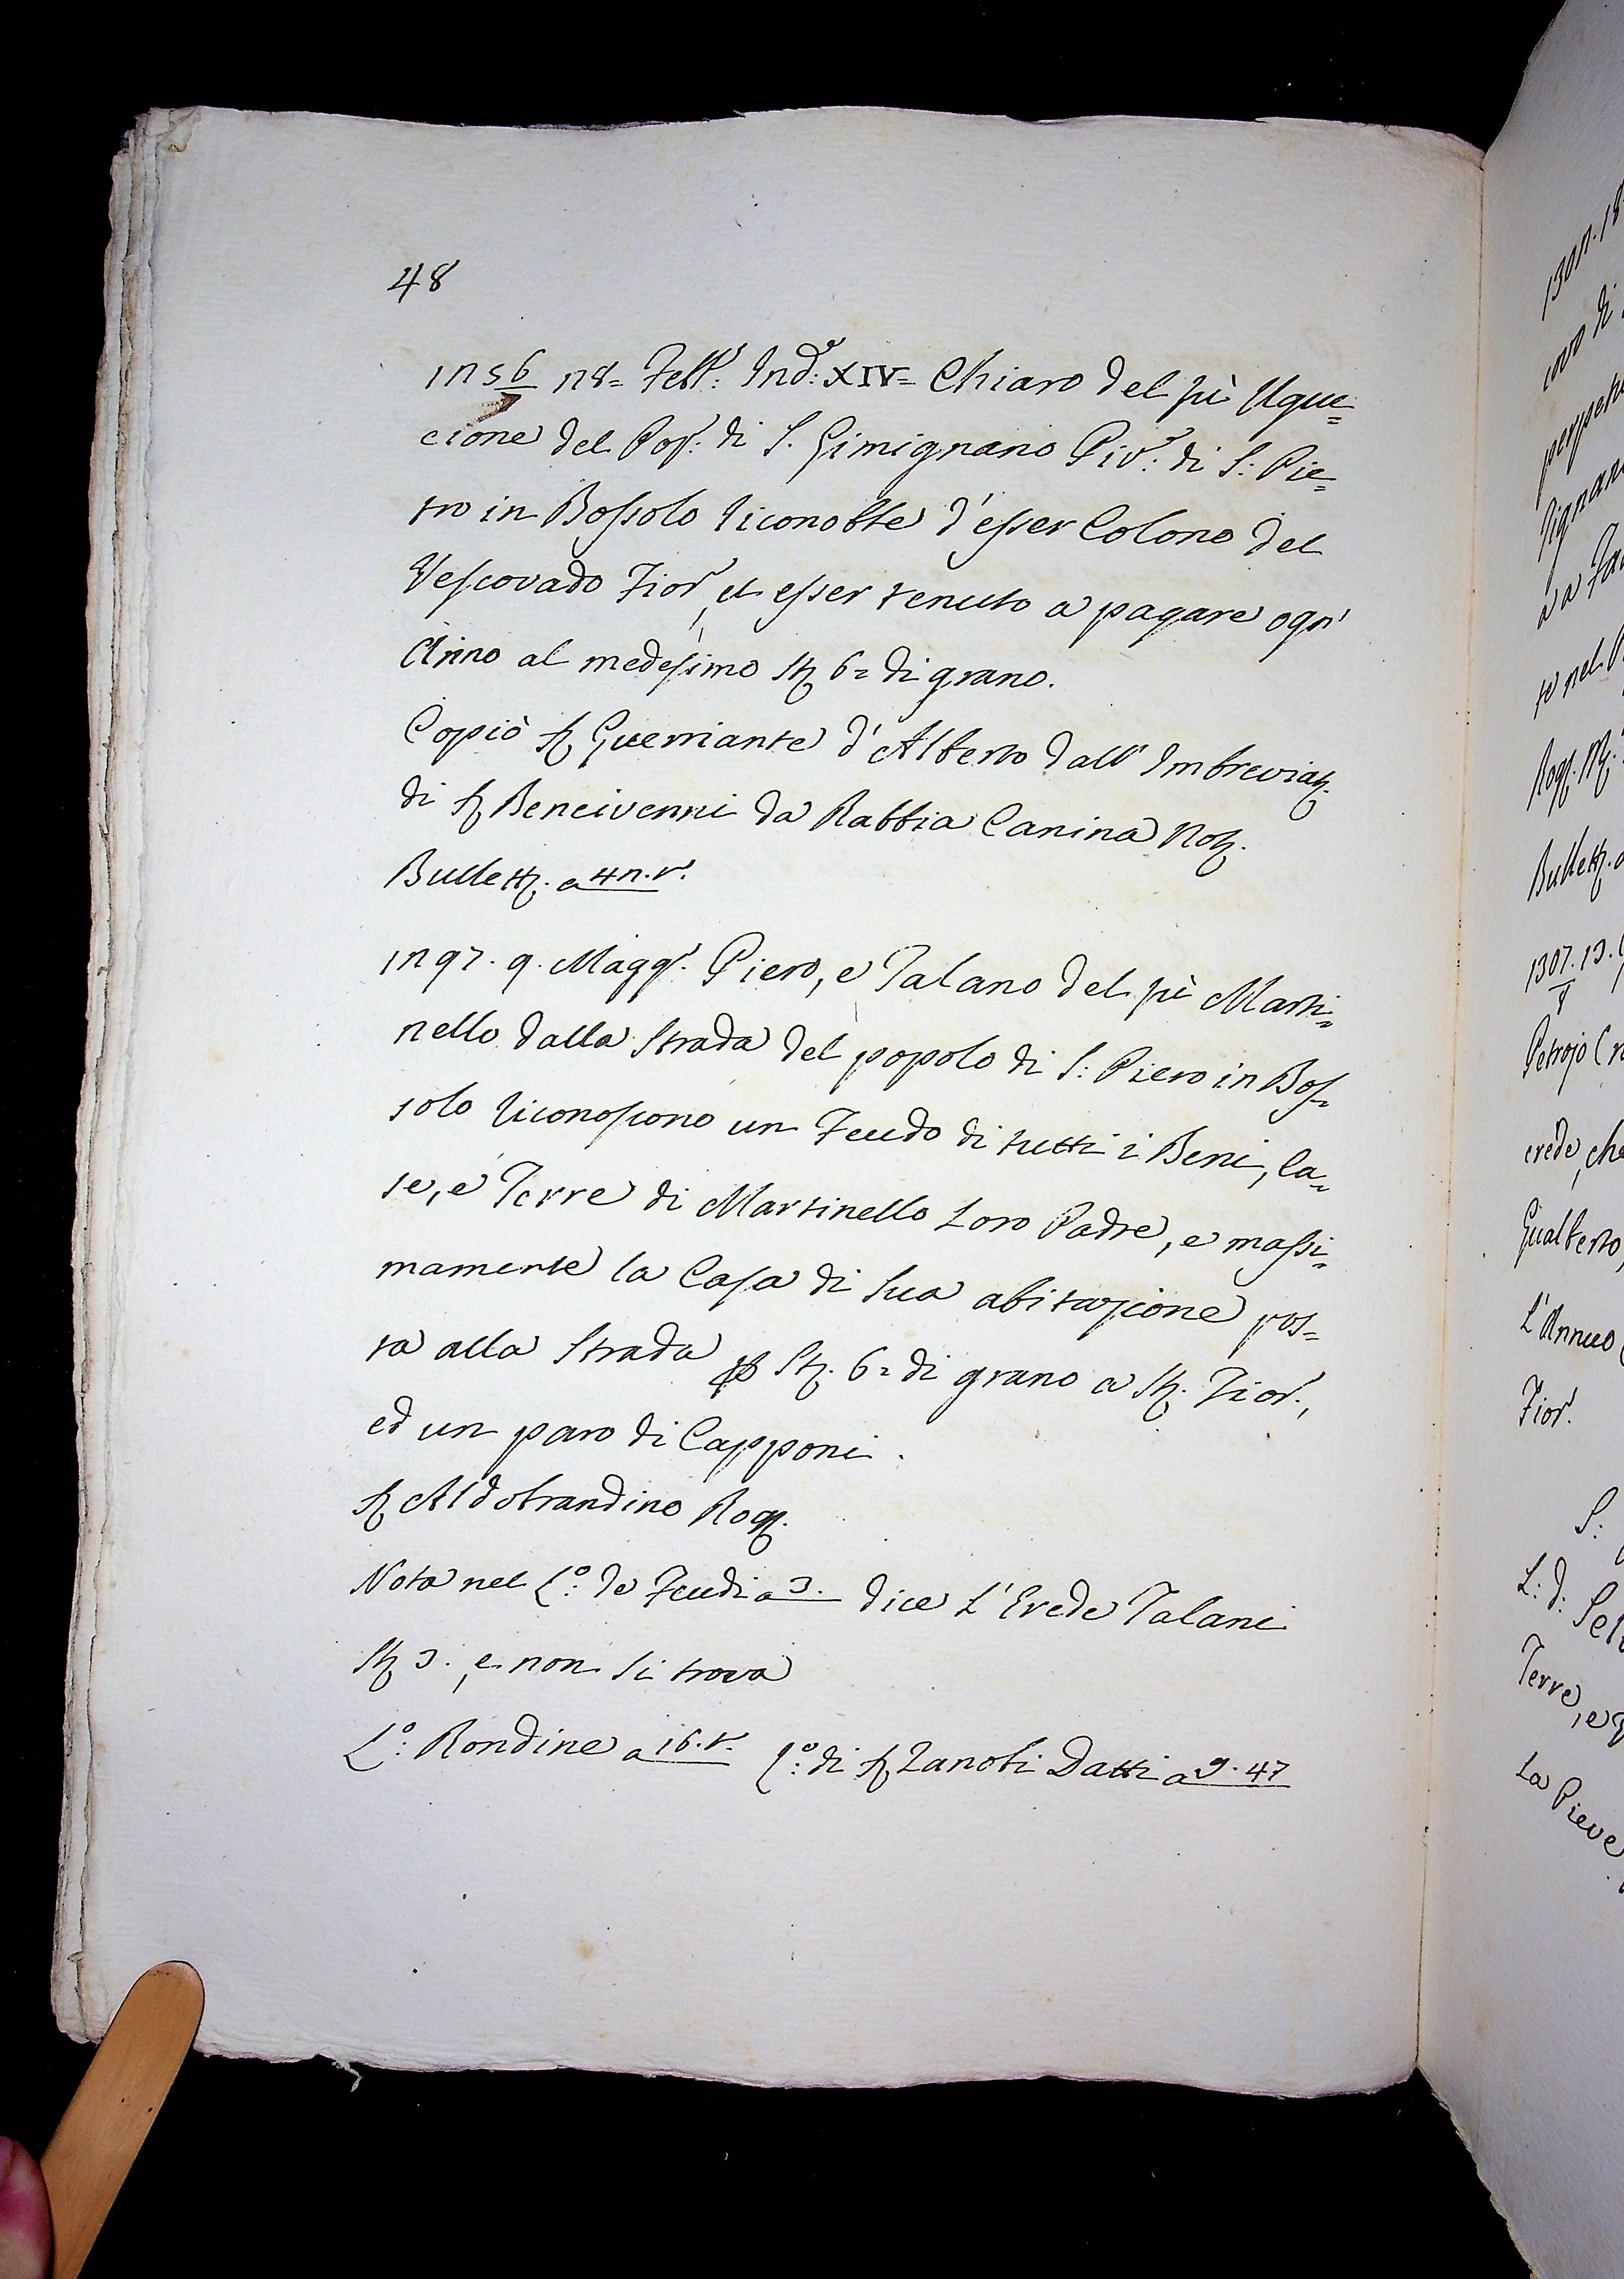 48
1256 28= Febb: Ind: XIV= Chiaro del fù Uguc=
cione del Pop: di S. Gimignano Piv: di S: Pie=
tro in Bossolo riconobbe d'esser Colono del
Vescovado Fior, et esser tenuto a pagare ogn'
Anno al medesimo St 6= di grano.
Copiò Sr Guerriante d'Alberto dall' Imbreviat.
di Sr Bencivenni da Rabbia Canina Not.
Bullett. a 42.v.
1297. 9. Magg. Piero, e Talano del fù Marti=
nello dalla Strada del popolo di S: Piero in Bos=
solo riconoscono un Feudo di tutti i Beni, Ca=
se, e Terre di Martinello Loro Padre, e massi=
mamente la Casa di Sua abitazione pos=
ta alla Strada p St. 6= di grano a St. Fior.,
ed un paro di Capponi.
Sr Aldobrandino Rog.
Nota nel L.º: de Feudi a 3. dice L'Erede Talani
St 3., e non si trova
L.º: Rondine a 16.v. L.º: di Sr Zanobi Datti a 9. 47
1307. 13.
Petrojo
crede, che
Gualberto,
L'Annuo
Fior.
S:
L: d:
Terre, e
La Pieve